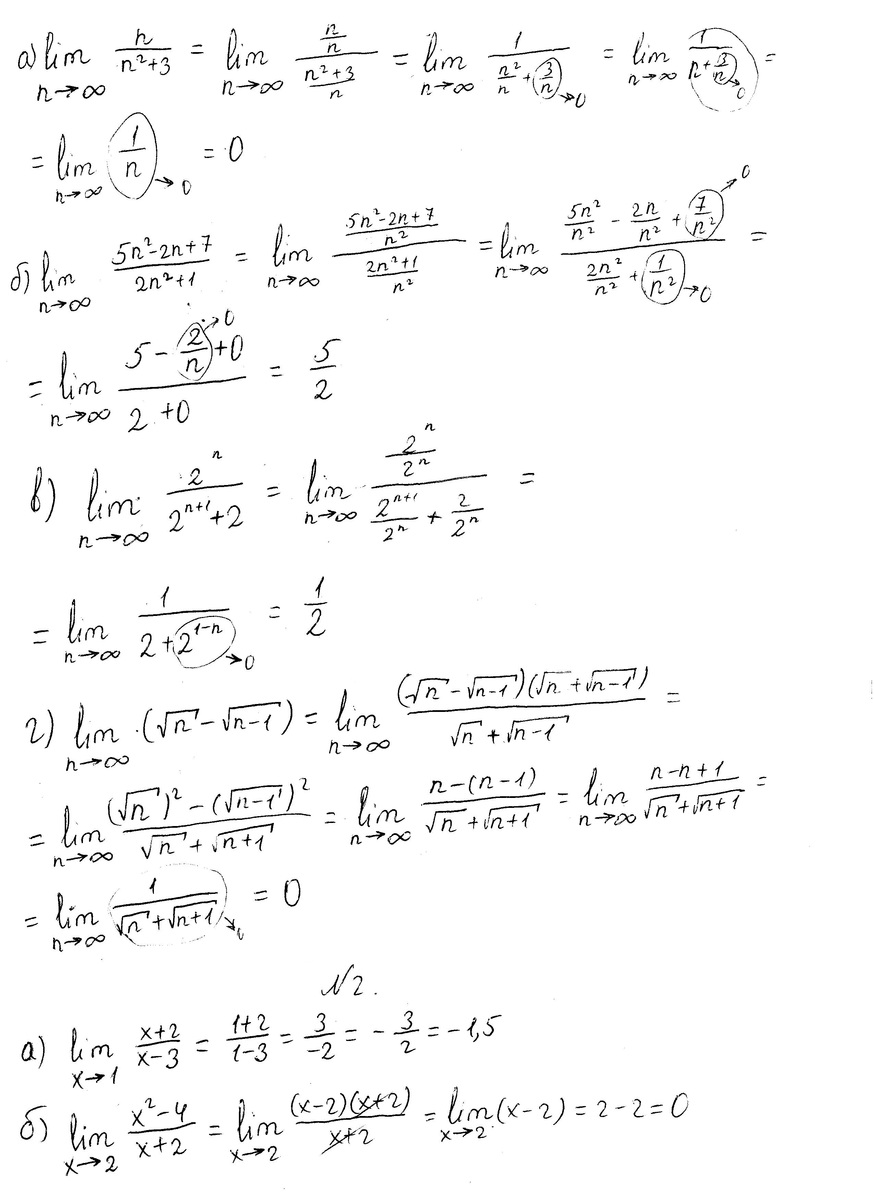 а) lim_{n→∞} n/(n²+3) = lim_{n→∞} (n/n)/((n²+3)/n) = lim_{n→∞} 1/(n²/n + 3/n →0) = lim_{n→∞} 1/(n+3/n →0) =
= lim_{n→∞} 1/n →0 = 0
б) lim_{n→∞} (5n²-2n+7)/(2n²+1) = lim_{n→∞} ((5n²-2n+7)/n²)/((2n²+1)/n²) = lim_{n→∞} (5n²/n² - 2n/n² + 7/n² →0)/(2n²/n² + 1/n² →0) =
= lim_{n→∞} (5 - 2/n →0 + 0)/(2+0) = 5/2
в) lim_{n→∞} 2^n/(2^{n+1}+2) = lim_{n→∞} (2^n/2^n)/(2^{n+1}/2^n + 2/2^n) =
= lim_{n→∞} 1/(2+2^{1-n} →0) = 1/2
г) lim_{n→∞} (√n - √(n-1)) = lim_{n→∞} (√n - √(n-1))(√n + √(n-1))/(√n + √(n-1)) =
= lim_{n→∞} ((√n)² - (√(n-1))²)/(√n + √(n+1)) = lim_{n→∞} (n-(n-1))/(√n + √(n+1)) = lim_{n→∞} (n-n+1)/(√n + √(n+1)) =
= lim_{n→∞} 1/(√n + √(n+1)) →0 = 0
N2.
а) lim_{x→1} (x+2)/(x-3) = (1+2)/(1-3) = 3/(-2) = -3/2 = -1,5
б) lim_{x→2} (x²-4)/(x+2) = lim_{x→2} (x-2)(x+2)/(x+2) = lim_{x→2} (x-2) = 2-2 = 0